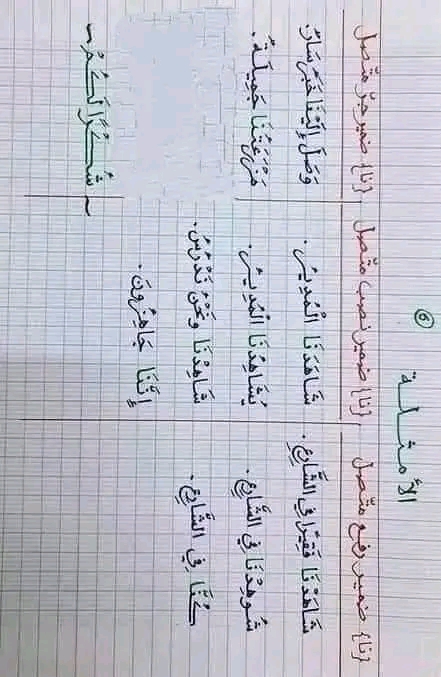 ⑥
الأمثلة
{نا} ضمير رفع متصل
شَاهَدْنَا فَقِيرًا فِي الشَّارِعِ.
شُوهِدْنَا فِي الشَّارِعِ.
كُنَّا فِي الشَّارِعِ.
{نا} ضمير نصب متصل
شَاهَدَنَا الْمُدِيرُ.
يُشَاهِدُنَا الْمُدِيرُ.
شَاهِدْنَا وَنَحْنُ نَدْرُسُ.
إِنَّنَا جَاهِزُونَ.
{نا} ضمير جر متصل
وَصَلَ إِلَيْنَا خَبَرٌ سَارٌّ.
مَزْرَعَتُنَا جَمِيلَةٌ.
~ شُكْرًا لَكُمْ ~